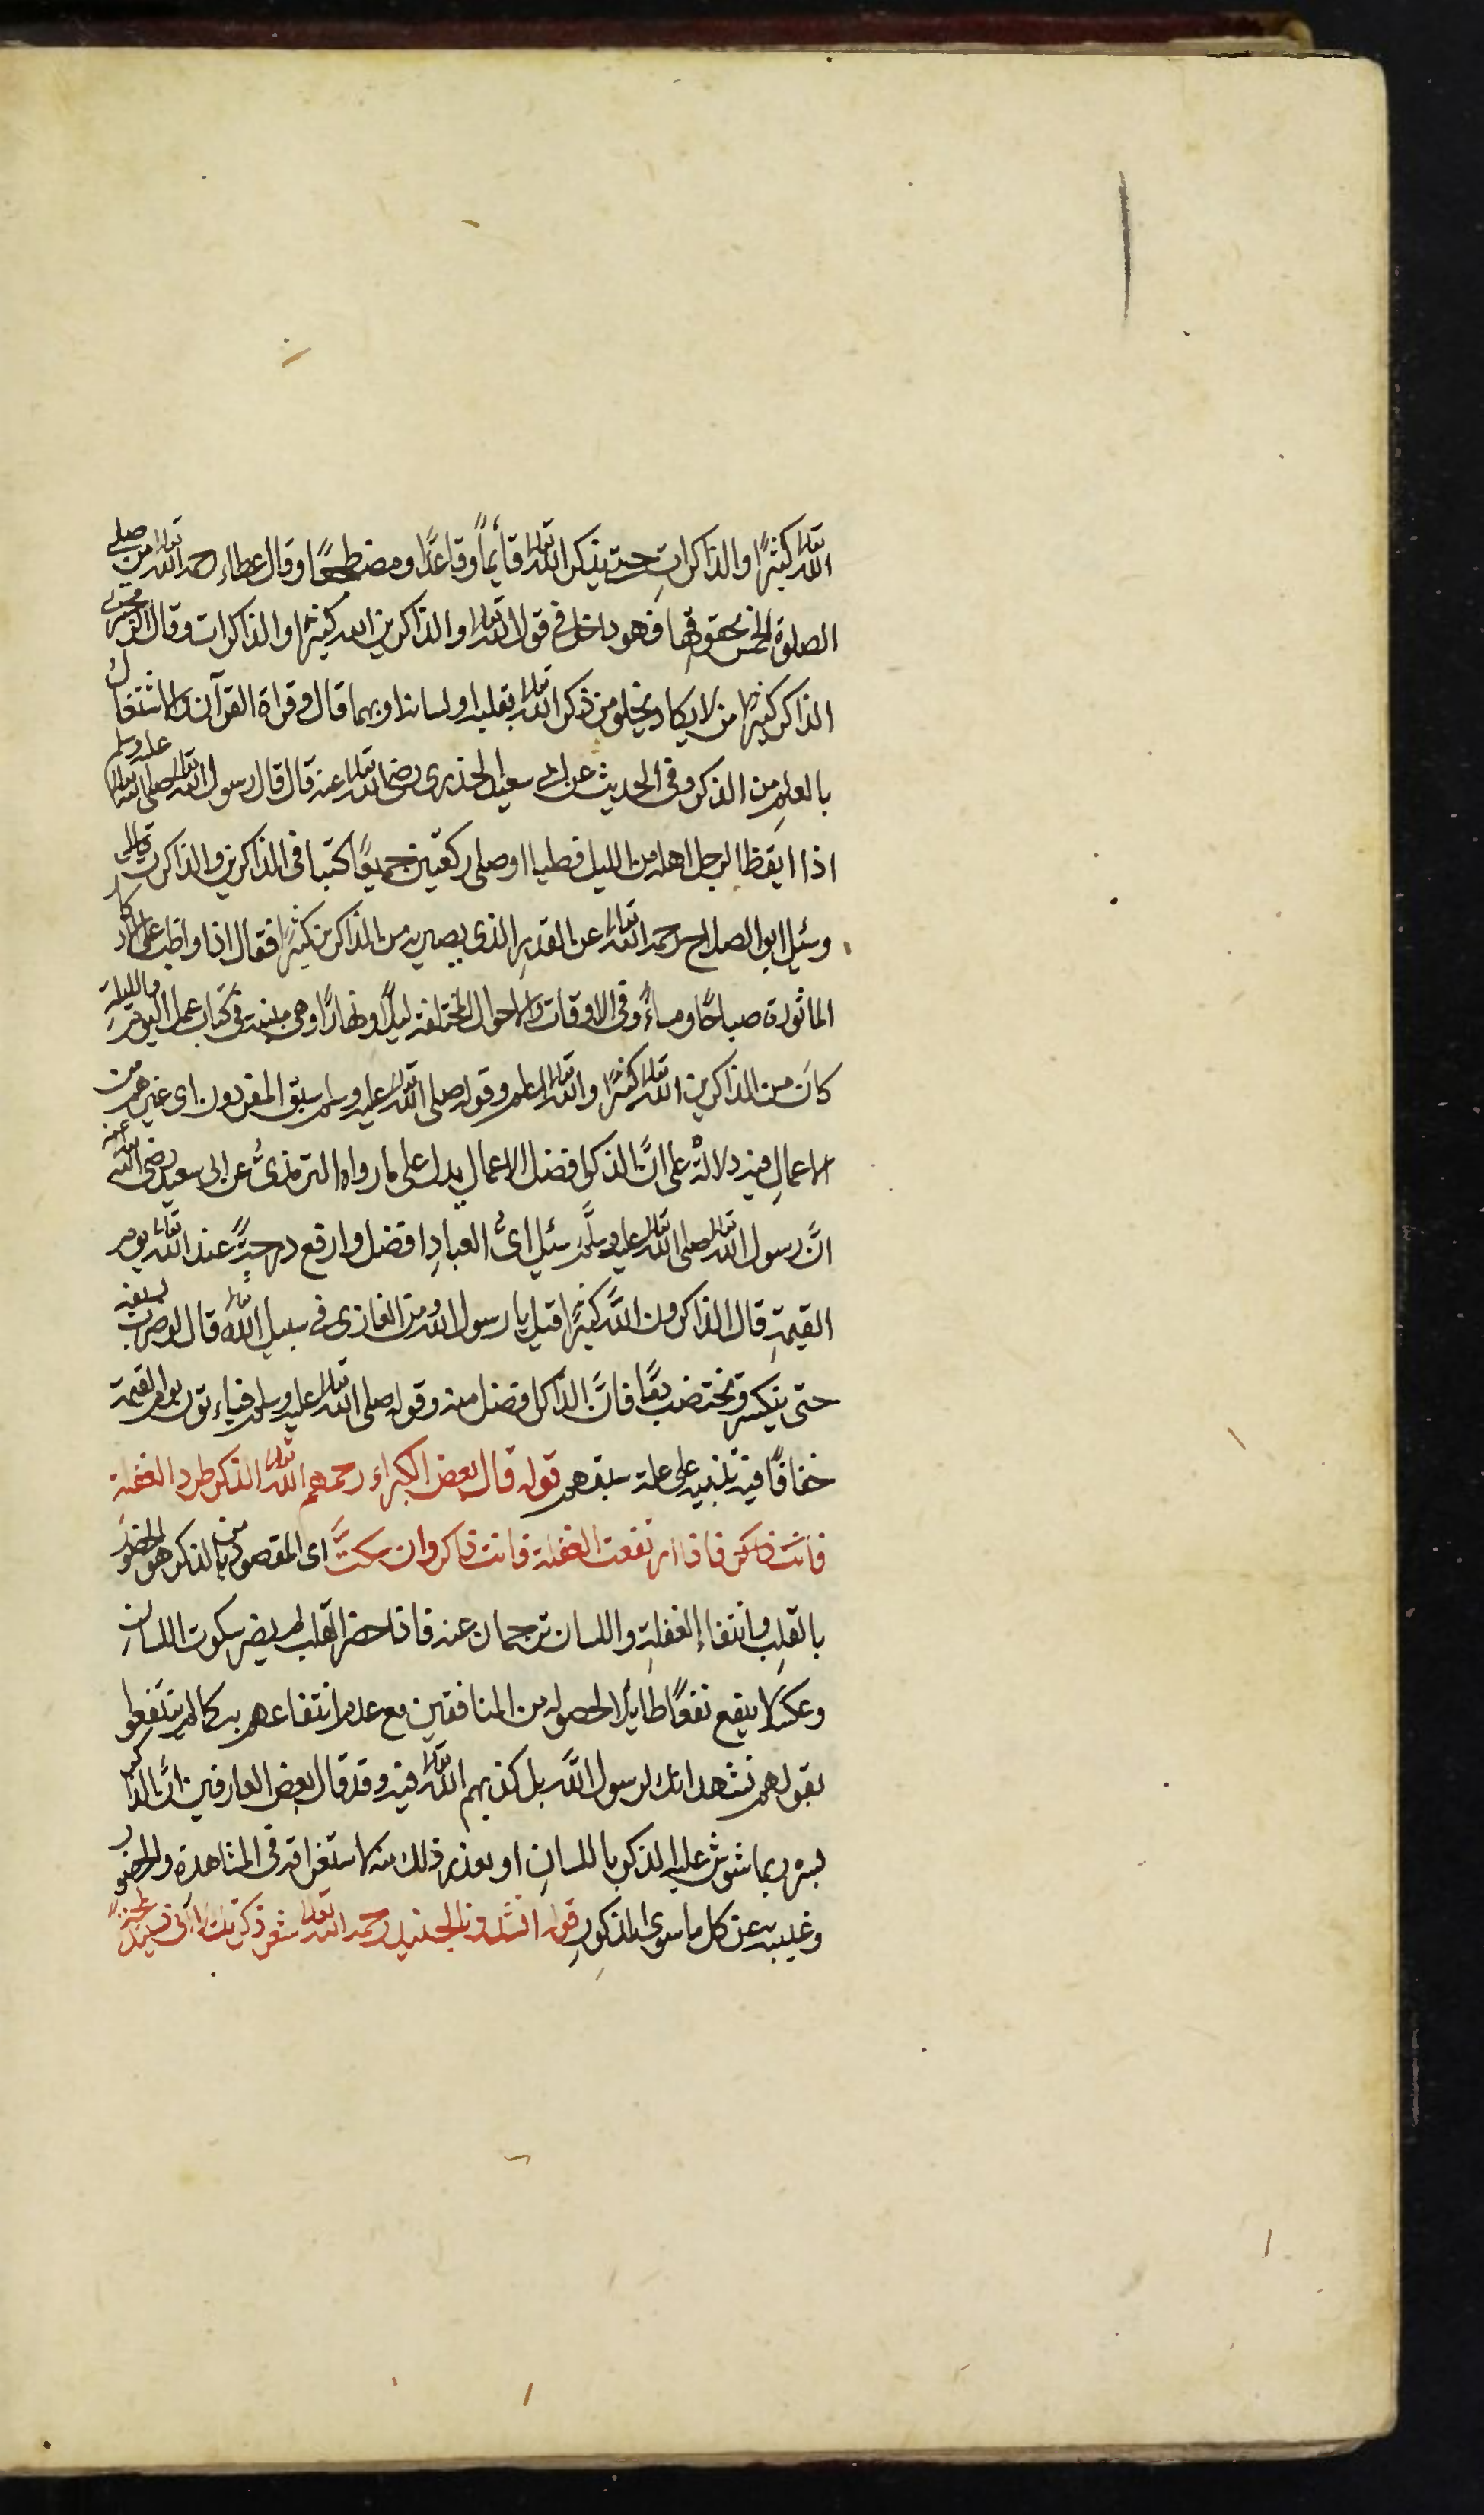 الله تعالى كثيرًا والذاكراتِ حتى يذكر الله تعالى قائماً وقاعدًا ومضطجعًا وقال عطاء رحمه الله تعالى من صلى
الصلوة الخمس بحقوقها فهو داخل في قول الله تعالى والذاكرين الله كثيرا والذاكرات وقال الزمخشرى
الذاكر كثيرا من لا يكاد يخلو من ذكر الله تعالى بقلبه او لسانه او بهما قال وقراة القرآن والاشتغال
بالعلمِ من الذكر وفى الحديث عن ابى سعيد الخدرى رضى الله تعالى عنه قال قال رسول الله تعالى صلى الله تعالى عليه وسلم
اذا ايقظ الرجل اهله من الليل فصليا او صلى ركعتين جميعًا كتبا فى الذاكرين والذاكرات
وسئل ابو الصلاح رحمه الله تعالى عن القدرِ الذى يصير به من الذاكرين كثيرًا فقال اذا واظب على الاذكار
الماثورة صباحًا ومساءً وفى الاوقات والاحوال المختلفة ليلًا ونهارًا وهى مبينة فى كتاب عمل اليوم والليلة
كانَ من الذاكرين الله تعالى كثيرًا والله تعالى اعلم وقوله صلى الله تعالى عليه وسلم سبق المفردون اى غيرهم من
الاعمالِ فيه دلالةٌ على انَّ الذكر افضل الاعمال يدل على ما رواه الترمذىُّ عن ابى سعيد رضى الله تعالى عنه
انَّ رسول الله تعالى صلى الله تعالى عليه وسلَّم سئل اىُّ العبادِ افضل وارفع درجةً عند الله تعالى يوم
القيمةِ قال الذاكرون اللَّه كثيرًا قيل يا رسول الله ومن الغازى فى سبيل الله تعالى قال لو ضرب بسيفه
حتى ينكسر وتختضب دمًا فانَّ الذاكر افضل منه وقوله صلى الله تعالى عليه وسلم فياءتون يوم القيمة
خفافًا فيه تنبيه على علة سبقهم قوله قال بعض الكبراء رحمهم الله تعالى الذكر طرد الغفلة
فانت ذاكر فاذا ارتفعت الغفلة فانت ذاكر وان سكتَّ اى المقصود من الذكر هو الحضور
بالقلبِ وانتفاء الغفلةِ واللسان ترجمان عنه فاذا حضر القلب لم يضر سكوت اللسانِ
وعكسه لا ينفع نفعًا طايلا لحصوله من المنافقين مع عدم انتفاعهم به كما لم ينتفعوا
بقولهم نشهد انك لرسول اللَّه بل كذبهم الله تعالى فيه وقد قال بعض العارفين انَّ الذاكر
بسره ربما شوش عليه الذكر باللسانِ او بعذر ذلك منه لاستغراقه فى المشاهدة والحضور
وغيبه عن كل ما سوى المذكورِ قوله انشدونا لجنيد رحمه الله تعالى شعر ذكرتك لا انى نسيتك